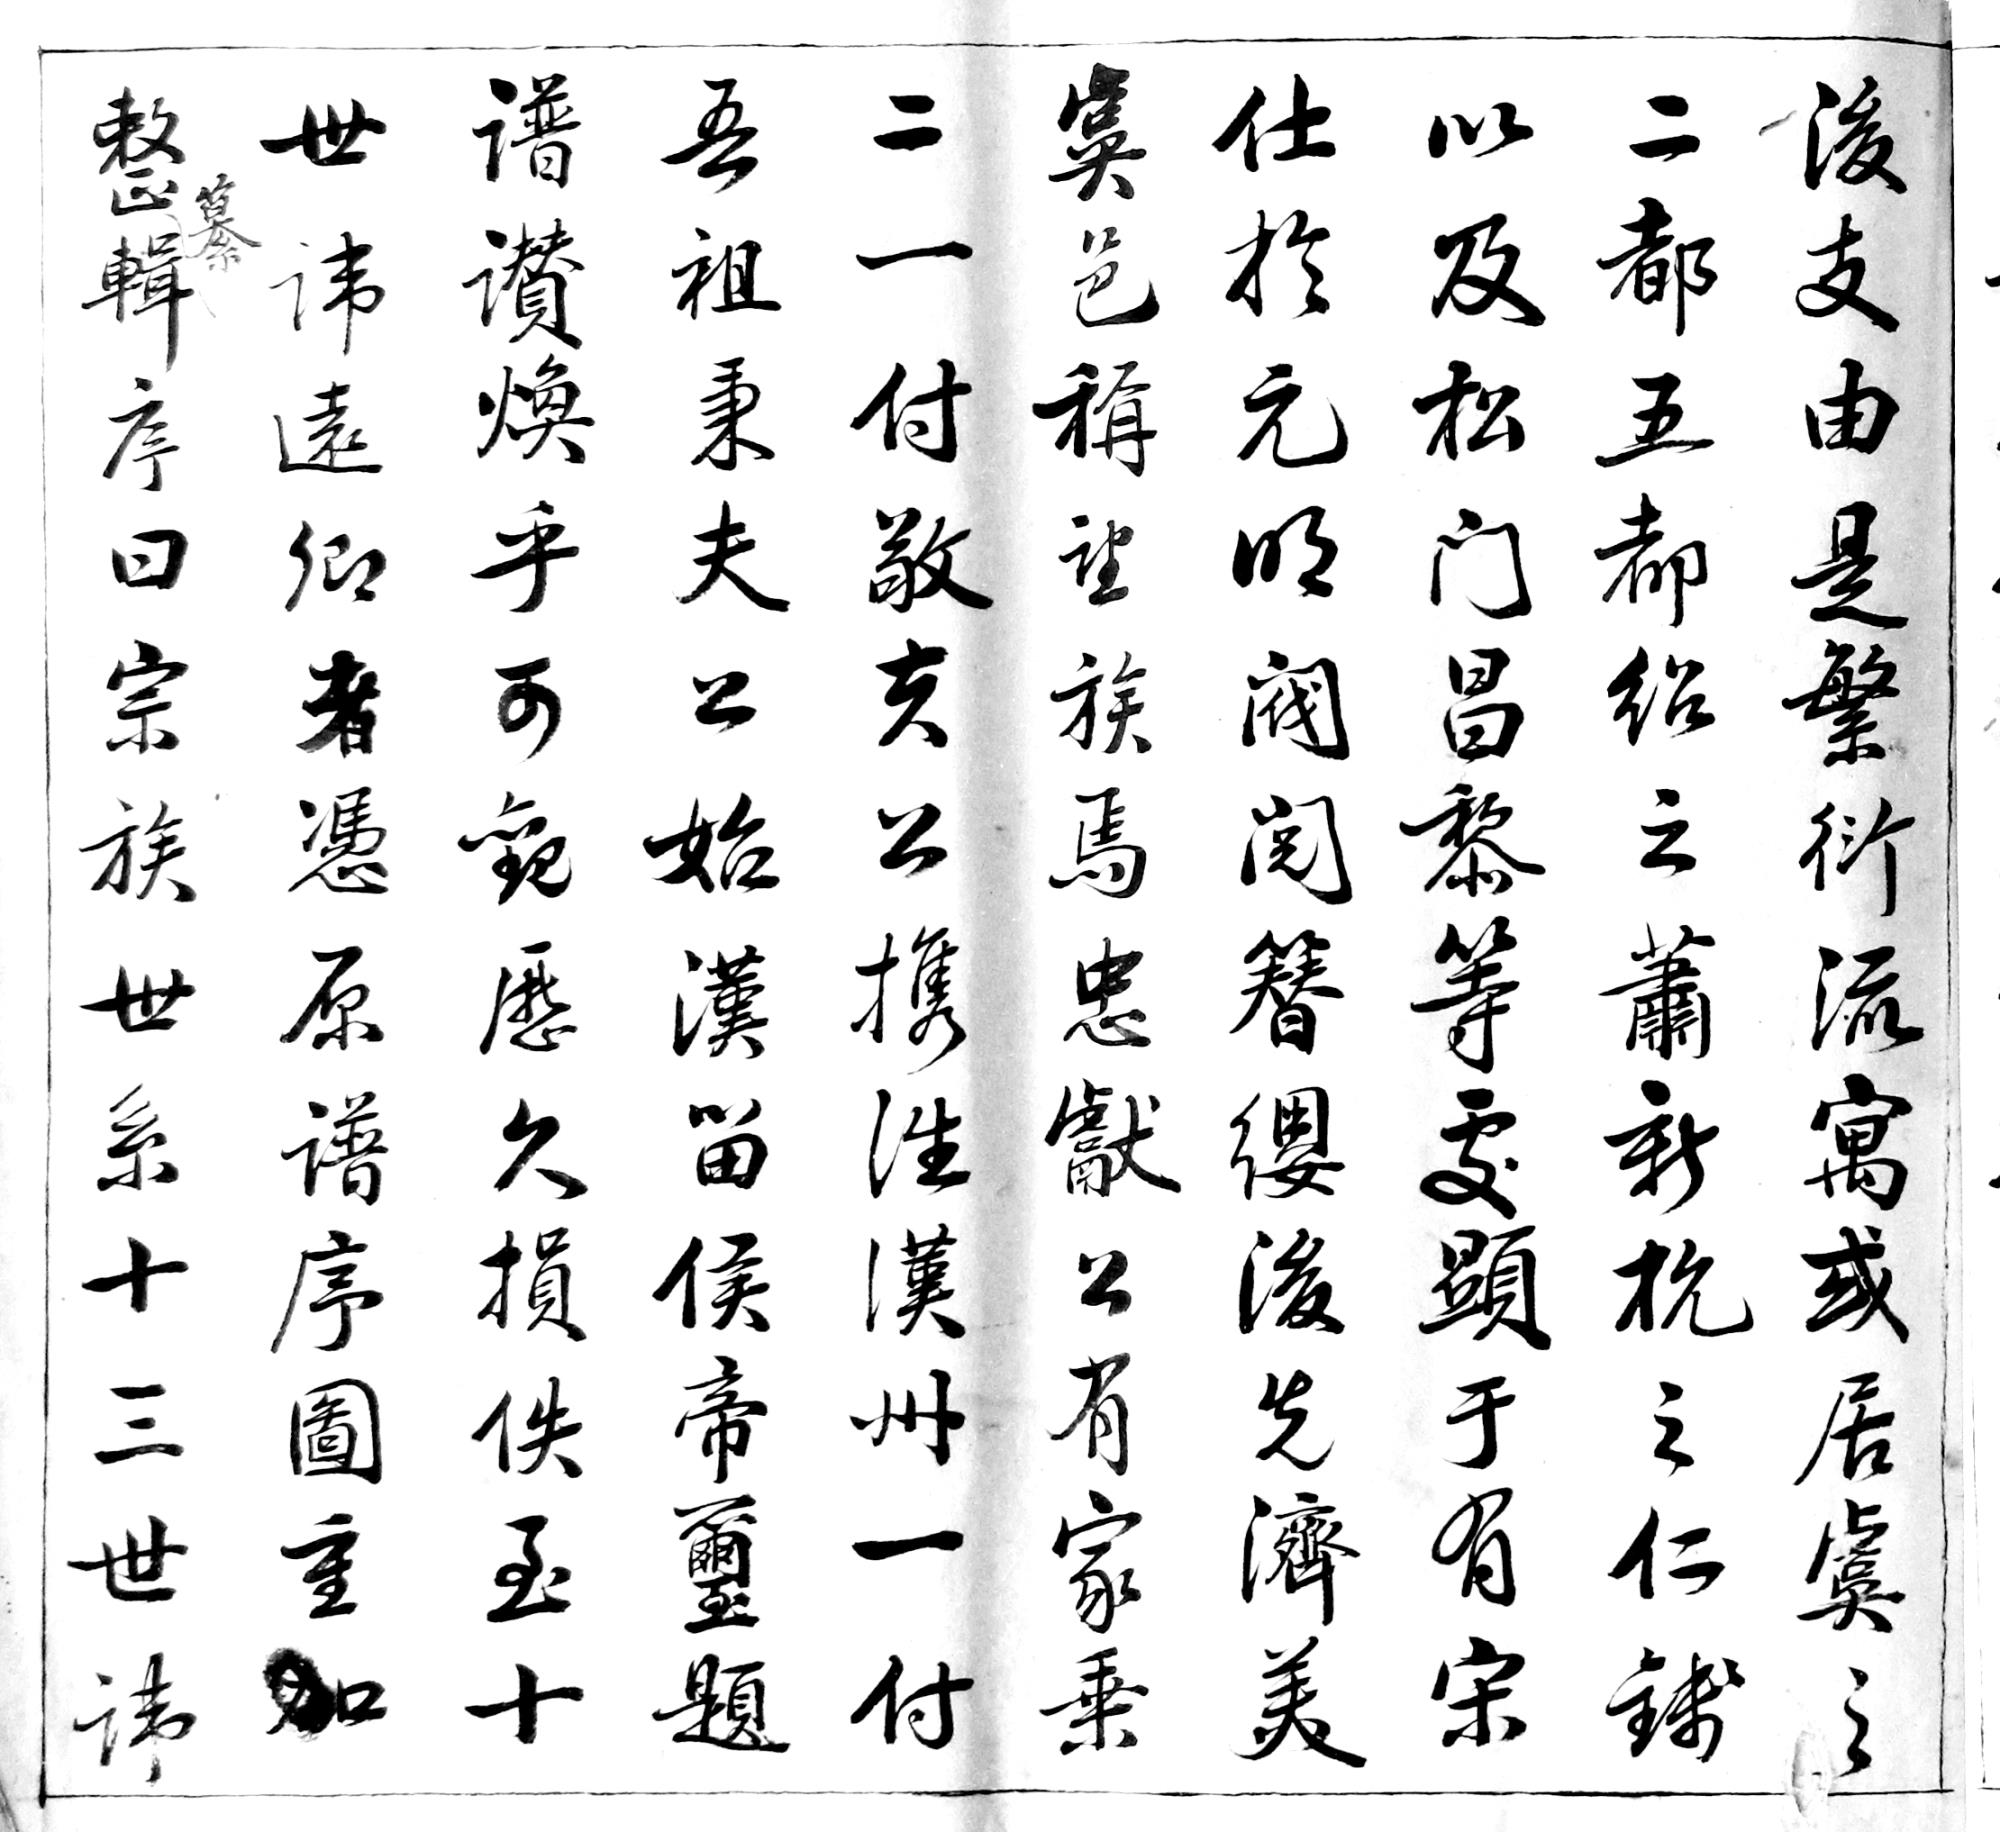 後支由是繁衍流寓或居虞之
二都五都紹之蕭新杭之仁錢
以及松门昌黎等處顯于有宋
仕於元明閥閲簪纓後先濟美
虞邑稱望族焉忠獻公有家乗
二一付敬夫公携徃漢州一付
吾祖秉夫公始漢留侯帝璽題
譜讚煥乎可觀歷久損佚至十
世諱遠卿者憑原譜序圖重加
整纂輯序曰宗族世系十三世諱